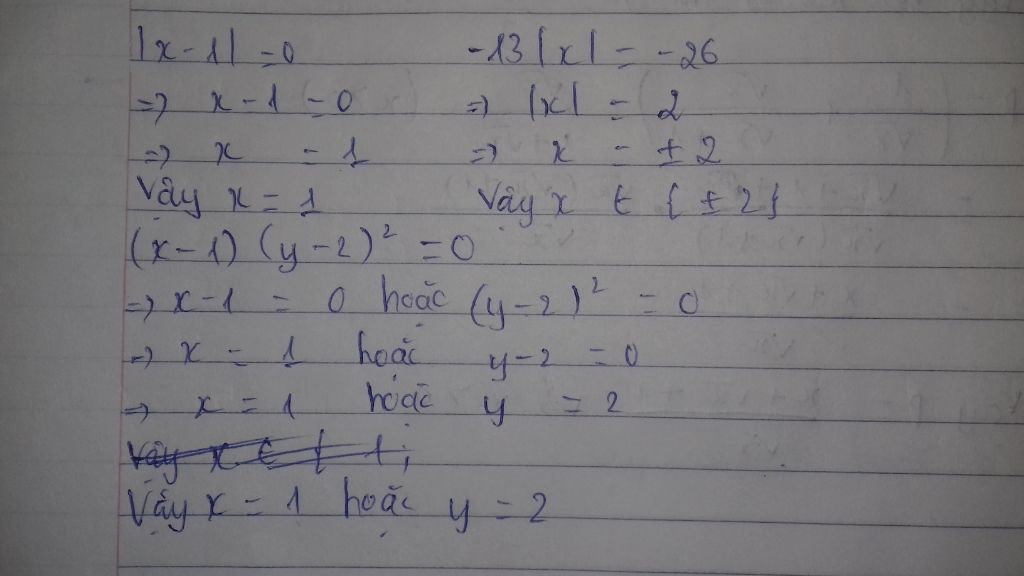 |x-1| = 0
=> x-1 = 0
=> x = 1
Vậy x = 1
-13|x| = -26
=> |x| = 2
=> x = ±2
Vậy x ∈ {±2}
(x-1) (y-2)² = 0
=> x-1 = 0 hoặc (y-2)² = 0
=> x = 1 hoặc y-2 = 0
=> x = 1 hoặc y = 2
Vậy x ∈ { 1;
Vậy x = 1 hoặc y = 2